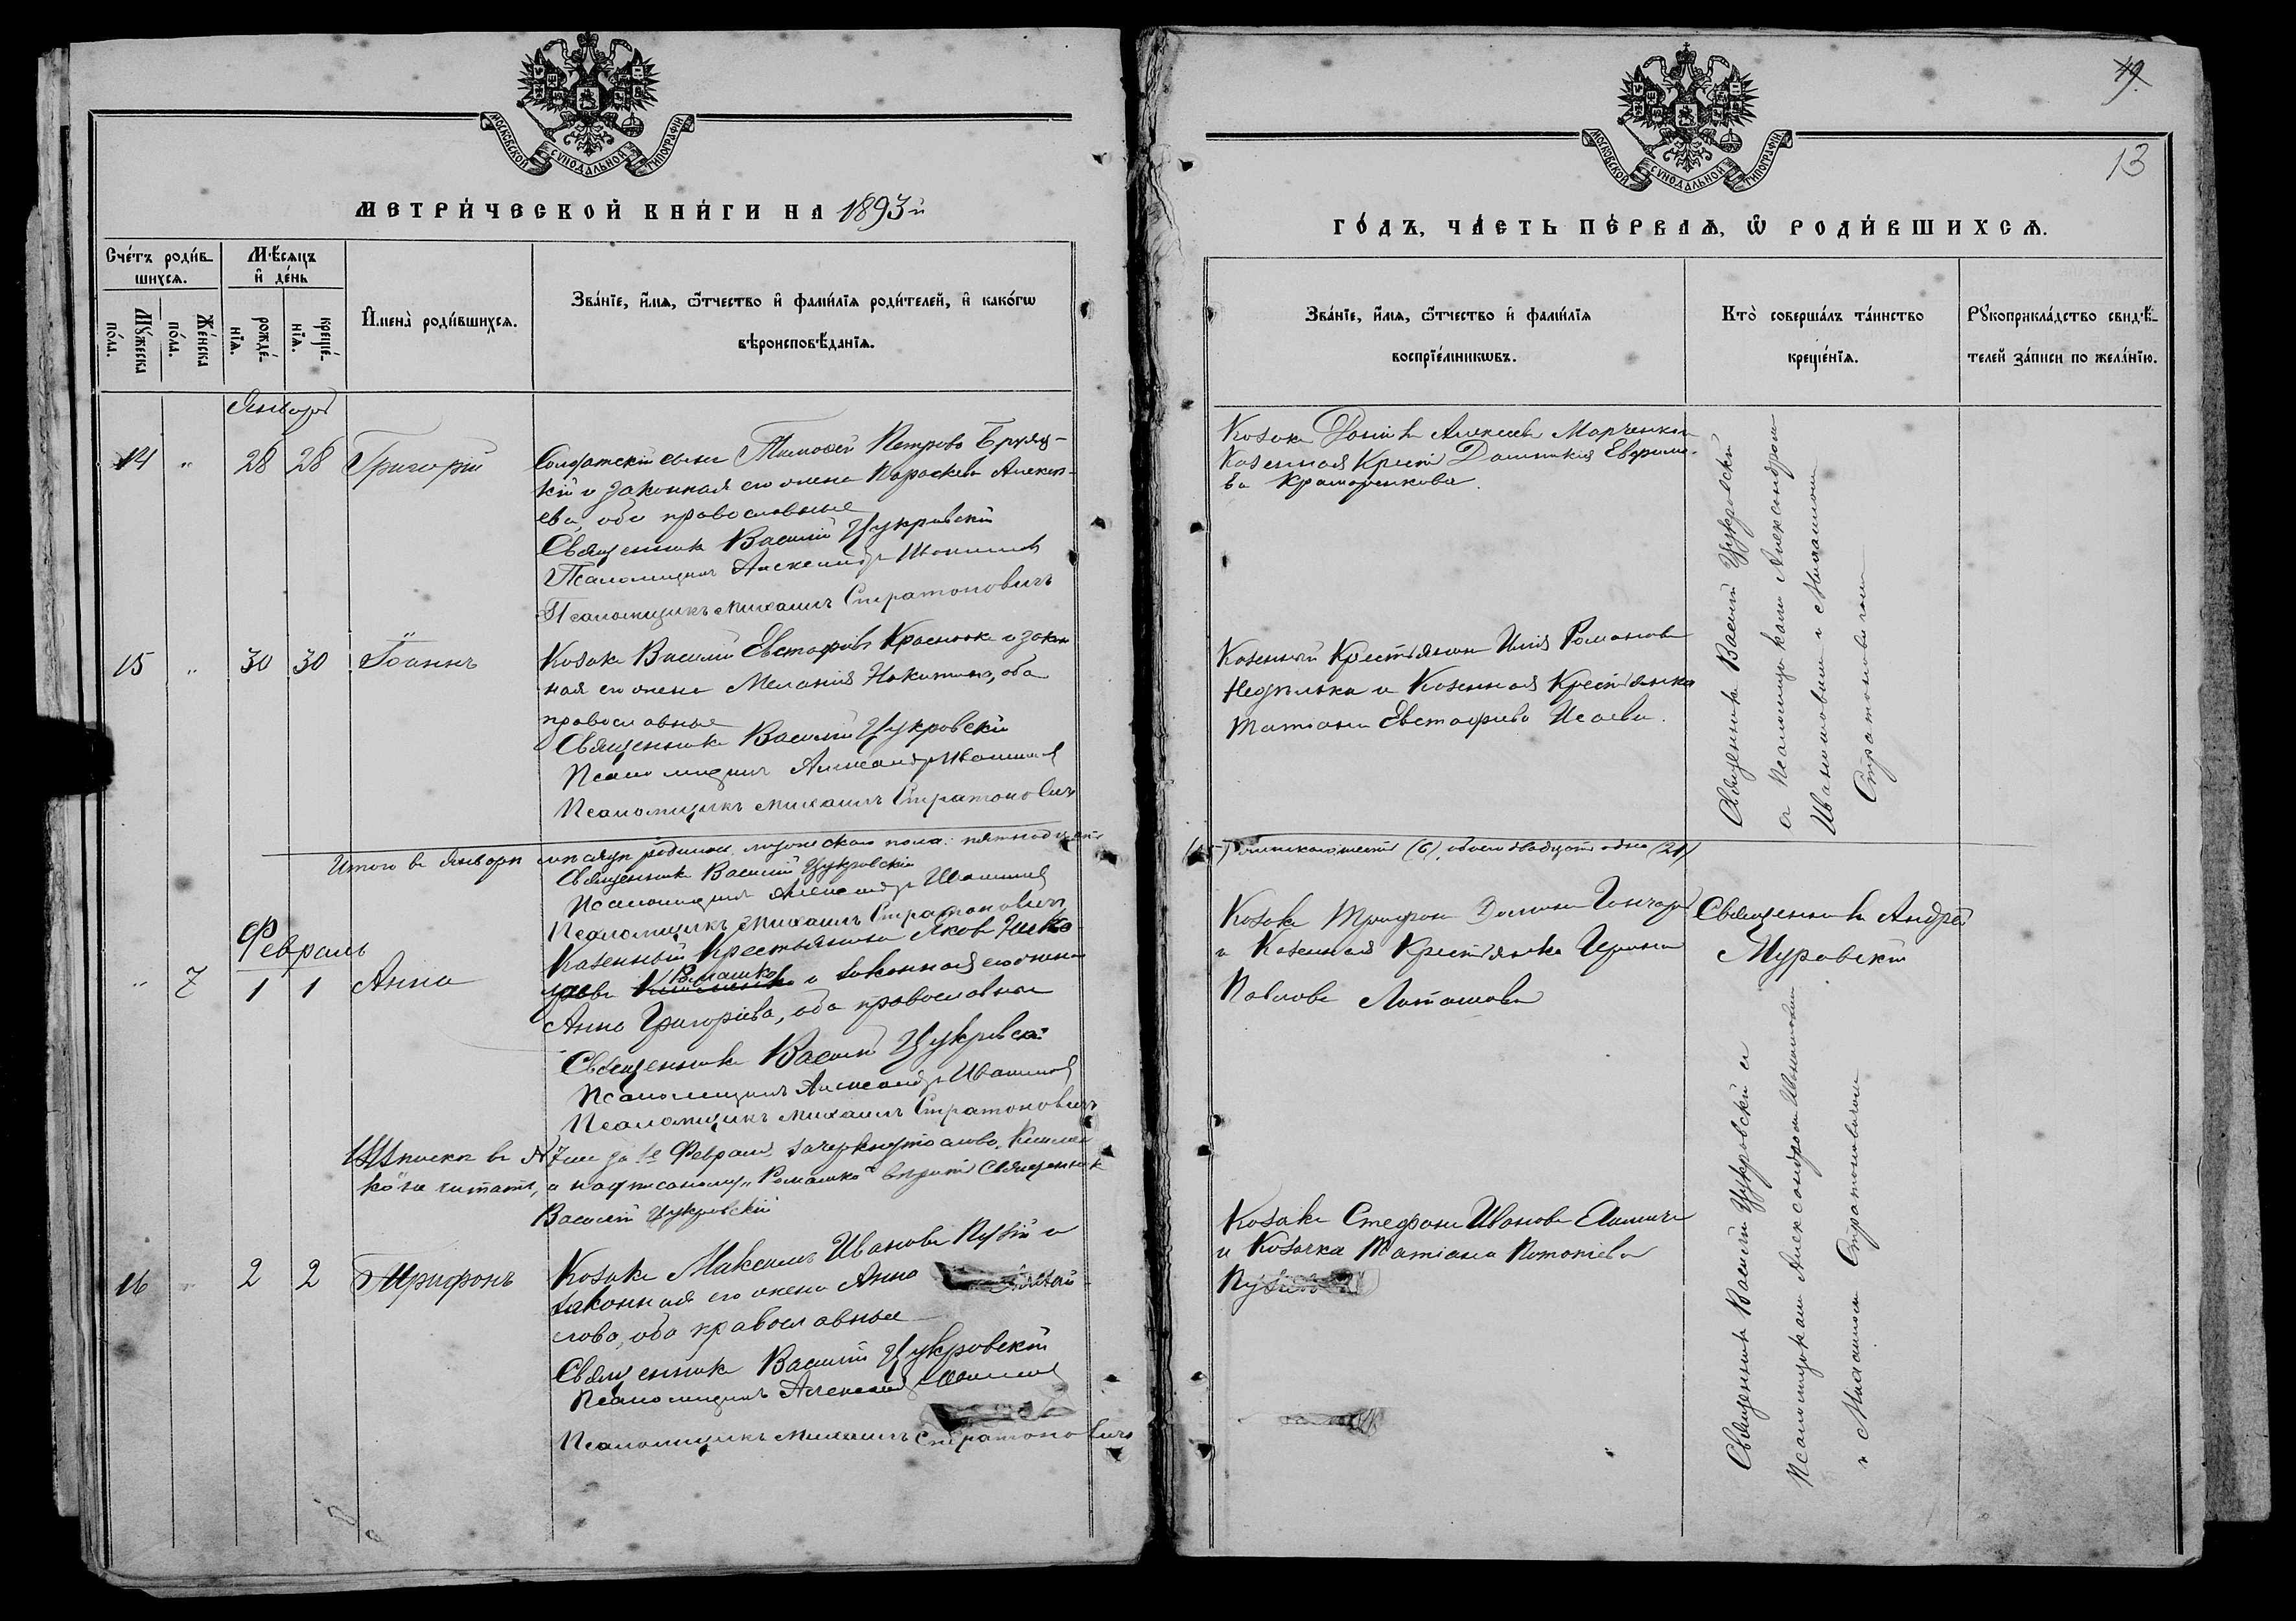 МОСКОВСКОЙ СѴНОДАЛЬНОЙ ТИПОГРАФІИ
МЕТРИ́ЧЕСКОЙ КНИ́ГИ НА 1893й
Сче́тъ роди́в-
шихся.
Мѣ́сяцъ
и҆ де́нь
Му́жеска по́ла.
Же́нска по́ла.
рожде́-
нія.
креще́-
нія.
И҆мена̀ роди́вшихся.
Зва́ніе, и҆́мя, ѻ҆́тчество и҆ фами́лія роди́телей, и҆ како́гѡ
вѣроисповѣ́данія.
Январь
14 " 28 28 Григорій
Солдатскій сынъ Тимоѳей Петровъ Бруяц-
кій и законная его жена Параскева Алексе-
ева, оба православные
Священникъ Василій Цукровскій
Псаломщикъ Александръ
Псаломщикъ Михаилъ Стратоновичъ
15 " 30 30 Іоаннъ
Козакъ Василій Евстафіевъ и закон
ная его жена Меланія Никитина, оба
православные
Священникъ Василій Цукровскій
Псаломщикъ Александръ
Псаломщикъ Михаилъ Стратоновичъ
Итого въ Январѣ мѣсяцѣ родилось мужескаго пола: пятнадцать
Священникъ Василій Цукровскій
Псаломщикъ Александръ
Псаломщикъ Михаилъ Стратоновичъ
Февраль
" 7 1 1 Анна
Казенный Крестьянинъ Яковъ Нико-
лаевъ Ромашко и законная его жена
Анна Григоріева, оба православные
Священникъ Василій Цукровскій
Псаломщикъ Александръ
Псаломщикъ Михаилъ Стратоновичъ
въ № 7мъ за 1е Февраля зачеркнутое слово
не читать, а надписаному "Ромашко" вѣрить Священникъ
Василій Цукровскій
16 " 2 2 Трифонъ
Козакъ Максимъ Ивановъ Пузій и
законная его жена Анна
оба православные
Священникъ Василій Цукровскій
Псаломщикъ Александръ
Псаломщикъ Михаилъ Стратоновичъ
МОСКОВСКОЙ СѴНОДАЛЬНОЙ ТИПОГРАФІИ
49.
13
ГО́ДЪ, ЧА́СТЬ ПЕ́РВАЯ, Ѡ҆ РОДИ́ВШИХСЯ.
Зва́ніе, и҆́мя, ѻ҆́тчество и҆ фами́лія
воспріе́мникѡвъ.
Кто̀ соверша́лъ та́инство
креще́нія.
Рукоприкла́дство свидѣ́-
телей за́писи по жела́нію.
Козакъ Алексѣевъ Марченко
Казенная Крест Домникія Евфимо-
ва Крамаренкова.
Казенный Крестьянинъ Илія Романовъ
Недилька и Казенная Крестьянка
Татіана Евстафіева Исаева.
Священникъ Василій Цукровскій
съ Псаломщиками Александромъ
и Михаиломъ
Стратоновичемъ
(15) женскаго шесть (6), обоего двадцать одно (21)
Козакъ Трифонъ Гончаръ
и Казенная Крестьянка Ирина
Павлова
Священникъ Андрей
Муровскій
Козакъ Стефанъ Ивановъ
и Козачка Татіана Потапіева
Священникъ Василій Цукровскій съ
Псаломщиками Александромъ
и Михаиломъ Стратоновичемъ